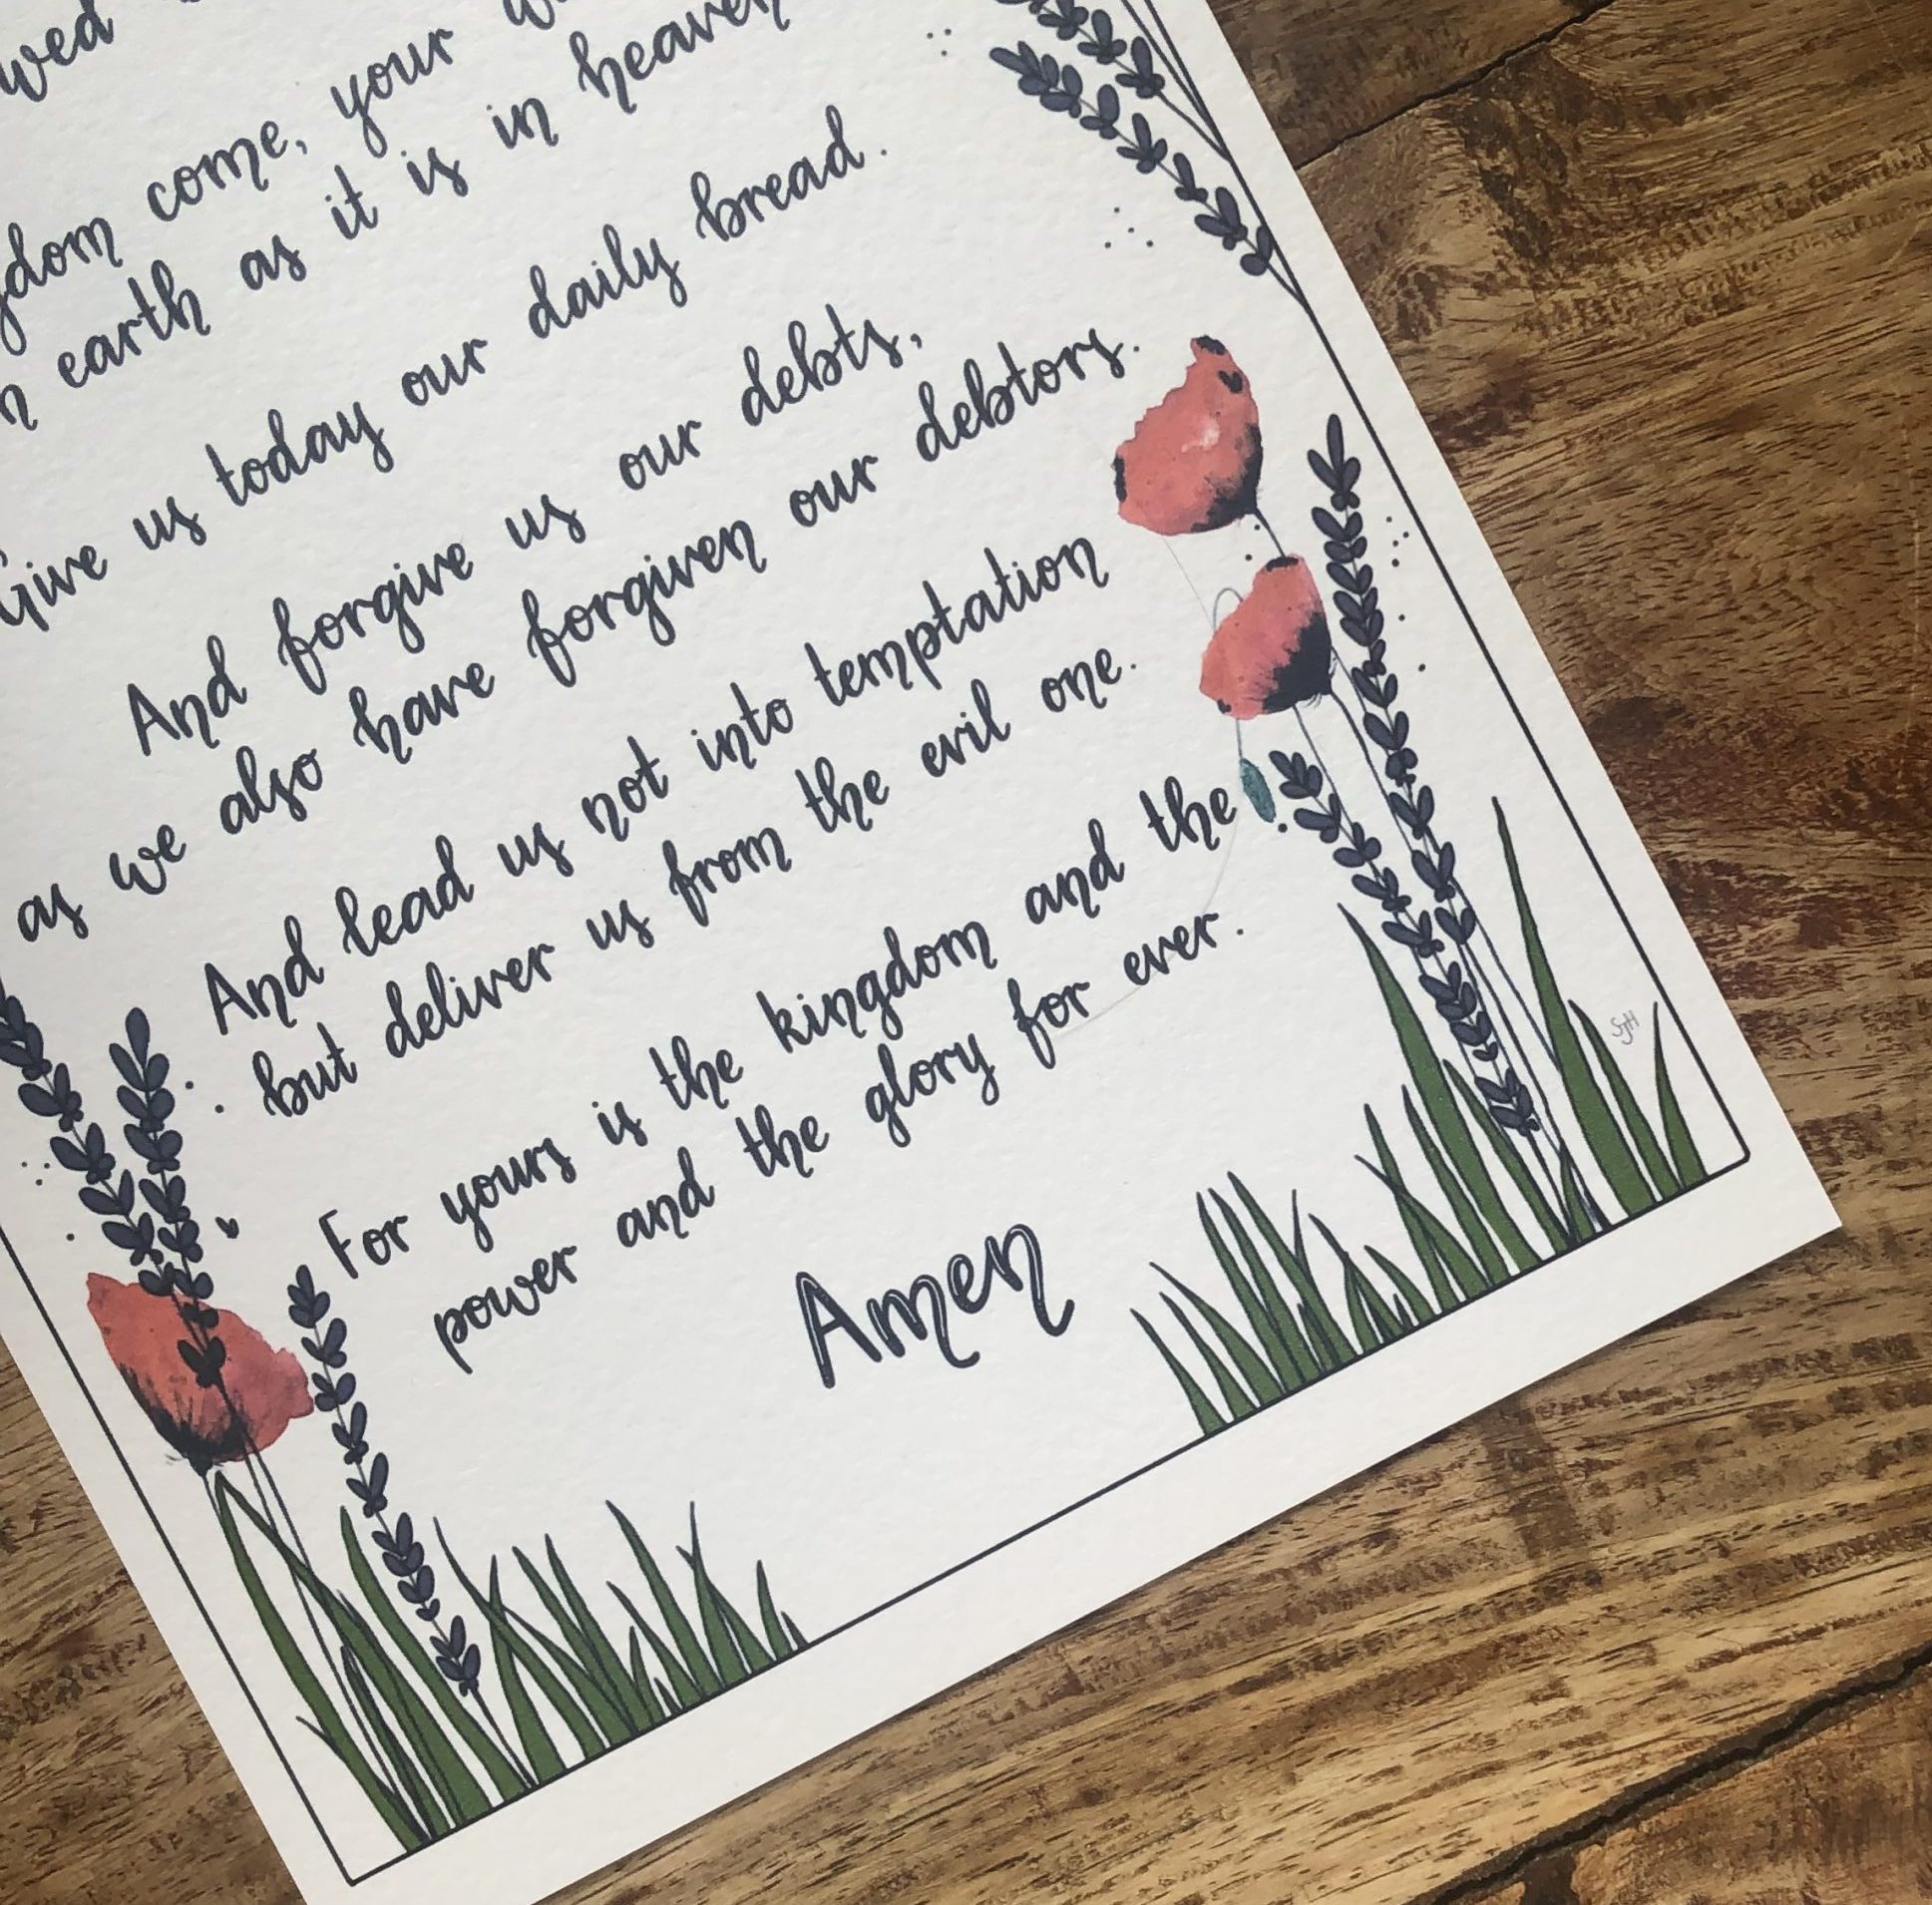 come, your
earth as it is in heaven
Give us today our daily bread.
And forgive us our debts,
as we also have forgiven our debtors.
And lead us not into temptation
but deliver us from the evil one.
For yours is the kingdom and the
power and the glory for ever.
Amen
SJH